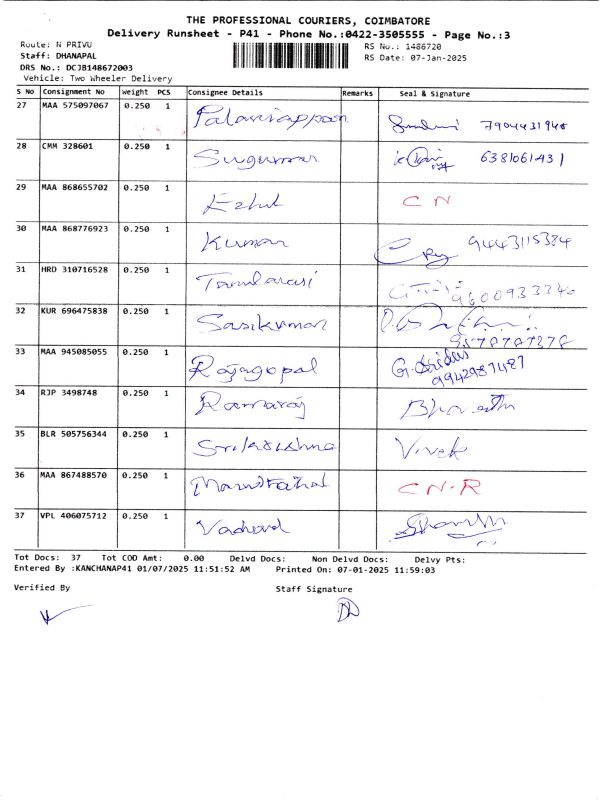 THE PROFESSIONAL COURIERS, COIMBATORE
Delivery Runsheet - P41 - Phone No.:0422-3505555 - Page No.:3
Route: N PRIVU RS No.: 1486720
Staff: DHANAPAL RS Date: 07-Jan-2025
DRS No.: DCJB148672003
Vehicle: Two Wheeler Delivery
S No Consignment No Weight PCS Consignee Details Remarks Seal & Signature
27 MAA 575097067 0.250 1 Palaniappan 7904431940
28 CMM 328601 0.250 1 Sugumar 6381061431
29 MAA 868655702 0.250 1 Ezhil CN
30 MAA 868776923 0.250 1 Kumar 9443115384
31 HRD 310716528 0.250 1 Tamilarasi 9600933340
32 KUR 696475838 0.250 1 Sasikumar 9578787878
33 MAA 945085055 0.250 1 Rajagopal G. Sridhar
9942987487
34 RJP 3498748 0.250 1 Ramaraj Bharath
35 BLR 505756344 0.250 1 Srikrishna Vivek
36 MAA 867488570 0.250 1 CN-R
37 VPL 406075712 0.250 1
Tot Docs: 37 Tot COD Amt: 0.00 Delvd Docs: Non Delvd Docs: Delvy Pts:
Entered By :KANCHANAP41 01/07/2025 11:51:52 AM Printed On: 07-01-2025 11:59:03
Verified By Staff Signature